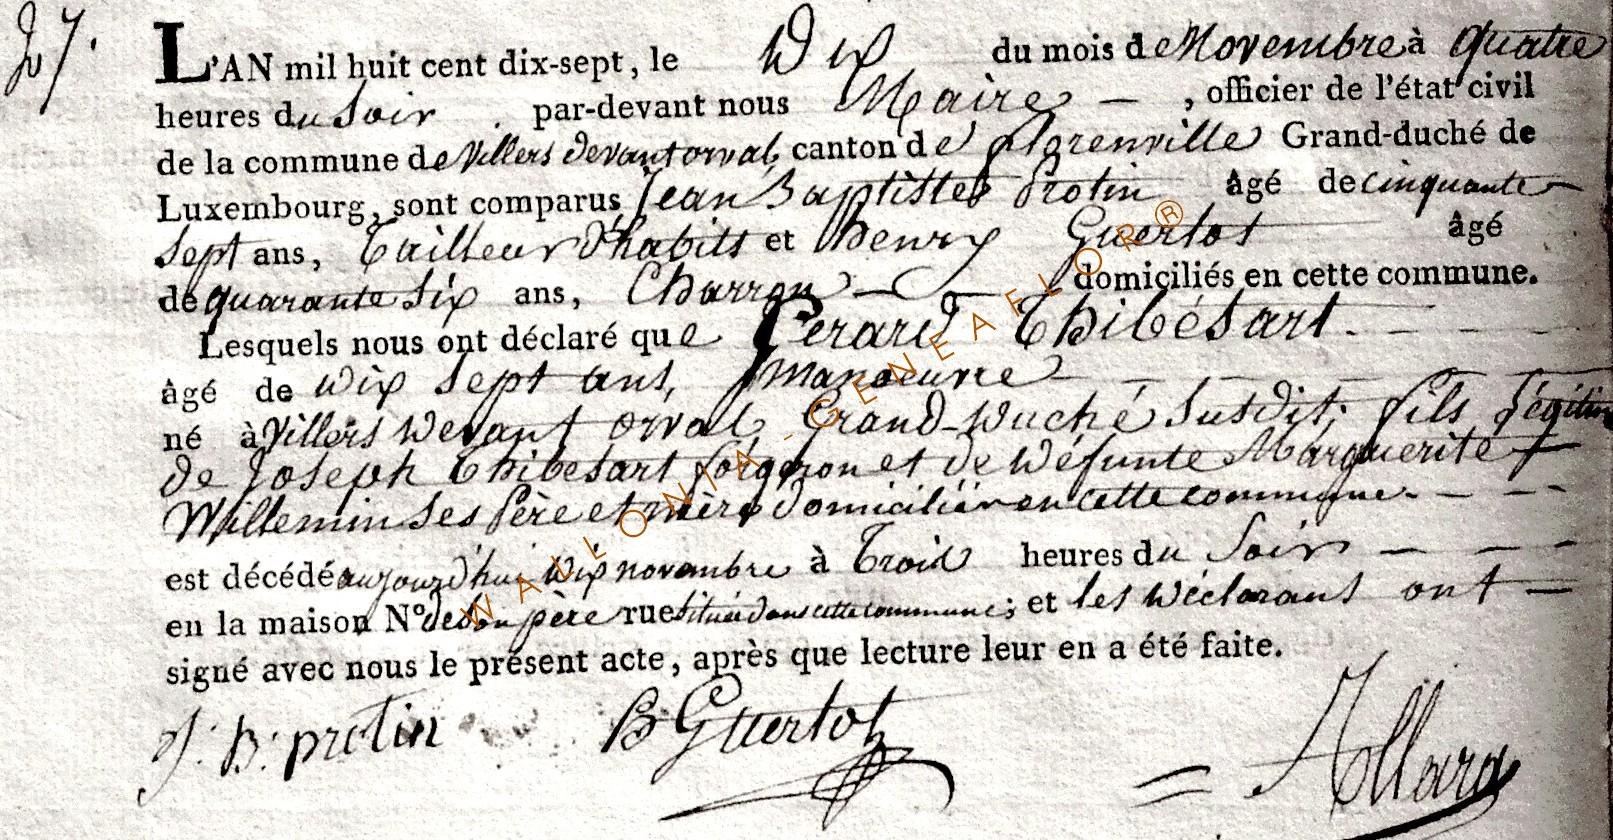 27.
L'AN mil huit cent dix-sept, le Dix du mois de Novembre à quatre
heures du Soir par-devant nous Maire, officier de l'état civil
de la commune de Villers devant orval, canton de florenville Grand-duché de
Luxembourg, sont comparus Jean Baptiste Protin âgé de cinquante
sept ans, Tailleur d'habits et henry Guertot âgé
de quarante six ans, Charron domiciliés en cette commune.
Lesquels nous ont déclaré que Gerard Thibésart.
âgé de Dix Sept ans, Manoeuvre
né à Villers Devant orval Grand-Duché Susdit, fils Légitime
de Joseph Thibésart forgeron et de Défunte Marguerite
Willemin Ses Père et mère domiciliés en cette commune
est décédé aujourd'hui Dix novembre à Trois heures du Soir
en la maison N° de son père rue située dans cette commune; et les Déclarans ont
signé avec nous le présent acte, après que lecture leur en a été faite.
J: B: protin B Guertot Allard
WALLONIA-GENEAFLOR®